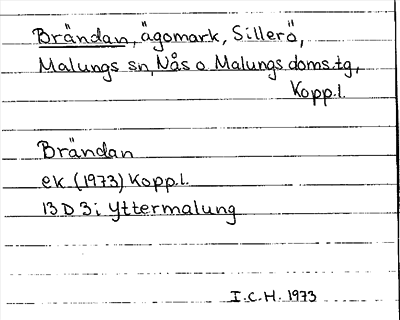 Brändan, ägomark, Sillerö,
Malungs sn, Nås o Malungs doms.tg,
Kopp.l.
Brändan
ek. (1973) Kopp.l.
13 D 3i Yttermalung
I.C.H. 1973